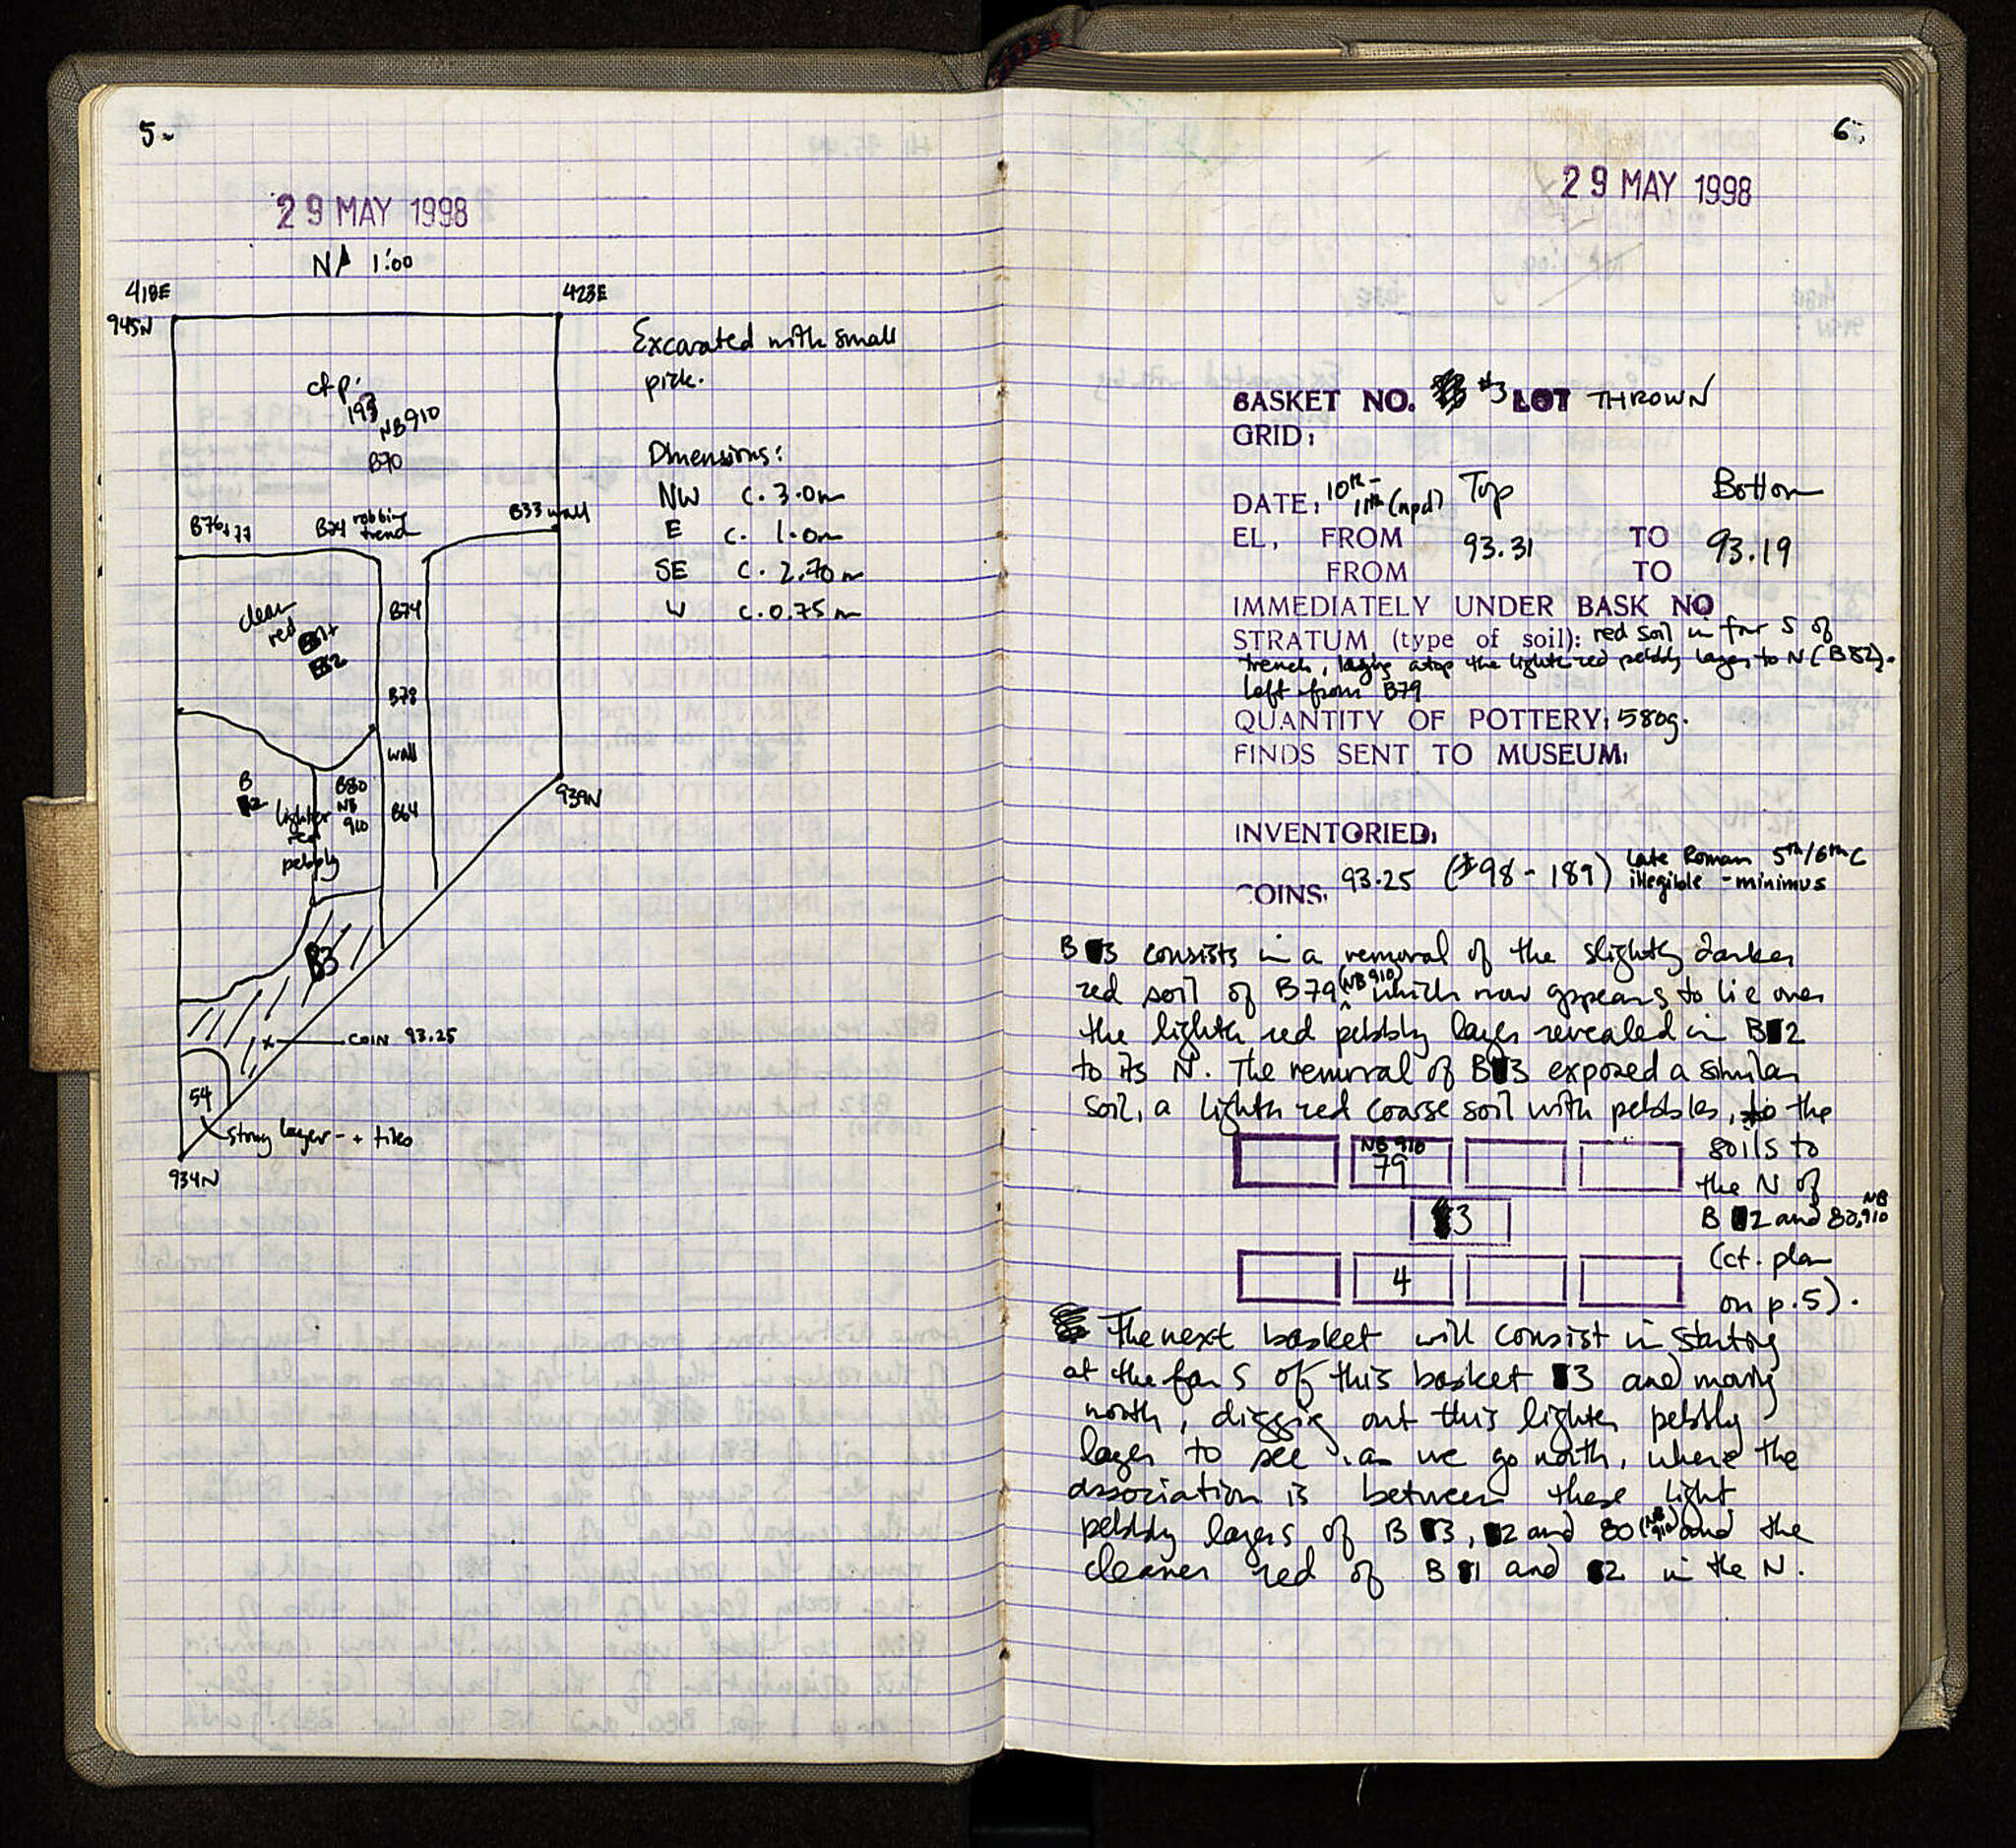 5.
29 MAY 1998
N 1:00
418E
423E
945N
cf p.
193
NB910
B70
B76+77
B74 robbing
trench
B33 wall
clean
red B1+
B2
B74
B78
wall
B64
B
2
lighter
red
pebbly
B80
NB
910
939N
B3
COIN 93.25
54
stony layer - + tiles
934N
Excavated with small
pick.
Dimensions:
NW c. 3.0m
E c. 1.0m
SE c. 2.70m
W c. 0.75m
6.
29 MAY 1998
BASKET NO. #3 LOT THROWN
GRID:
DATE: 10th- 11th (npd) Top Bottom
EL. FROM 93.31 TO 93.19
FROM TO
IMMEDIATELY UNDER BASK NO
STRATUM (type of soil): red soil in far S of
trench, laying atop the lighter red pebbly layer to N (B82).
left from B79
QUANTITY OF POTTERY: 580g.
FINDS SENT TO MUSEUM:
INVENTORIED:
COINS: 93.25 (#98-189) Late Roman 5th/6th C
illegible - minimus
B 3 consists in a removal of the slightly darker
red soil of B79 (NB 910) which now appears to lie over
the lighter red pebbly layer revealed in B 2
to its N. The removal of B 3 exposed a similar
soil, a lighter red coarse soil with pebbles, to the
NB 910
79
soils to
the N of
3
B 2 and 80, NB 910
4
(cf. plan
on p.5).
The next basket will consist in starting
at the far S of this basket 3 and moving
north, digging out this lighter pebbly
layer to see, as we go north, where the
association is between these light
pebbly layers of B 3, 2 and 80 (NB 910) and the
cleaner red of B 1 and 2 in the N.